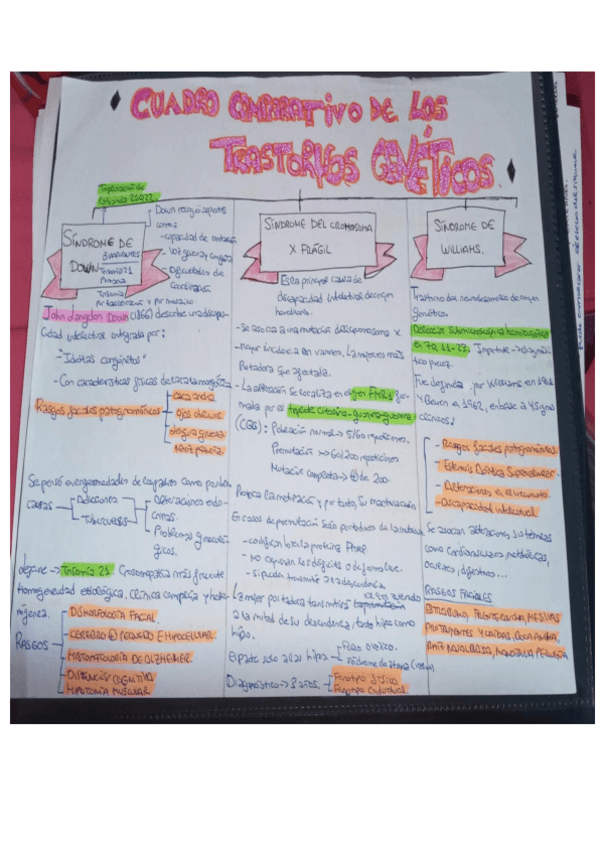 CUADRO COMPARATIVO DE LOS
TRASTORNOS GENÉTICOS.
SÍNDROME DE
DOWN
3 VARIANTES
Trisomía 21
Down recogió aspectos
como:
- capacidad de imitación
- Voz gruesa y gangosa
- Dificultades de
Coordinación
John Langdon Down (1866) describe una discapa-
cidad intelectual integrada por:
- "Idiotas congénitos"
- Con características físicas de la raza mongólica
Rasgos faciales patognomónicos
cara ancha
ojos oblicuos
lengua gruesa
Nariz pequeña
Se pensó en enfermedades de los padres como posibles
causas
Adicciones
Tuberculosis
Alteraciones endo-
crinas.
Problemas ginecoló-
gicos.
Lejeune → Trisomía 21. Cromosomopatía más frecuente
Homogeneidad etiológica. Clínica compleja y hete-
rogénea.
RASGOS
DISMORFOLOGÍA FACIAL.
CEREBRO PEQUEÑO E HIPOCELULAR.
HISTOPATOLOGÍA DE ALZHEIMER.
DISTINCIÓN COGNITIVA
HIPOTONÍA MUSCULAR
SÍNDROME DEL CROMOSOMA
X FRÁGIL
Es la principal causa de
discapacidad intelectual de origen
hereditario.
- Se asocia a una mutación del cromosoma X.
- Mayor incidencia en varones. La mujer es más
Portadora que afectada.
- La alteración se localiza en el gen FMR1 for-
mada por el triplete citosina-guanina-guanina
(CGG): Población normal → 5/60 repeticiones.
Premutación → 60/200 repeticiones
Mutación completa → de 200.
Provoca la metilación y por tanto, su inactivación
En casos de premutación serán portadores de la mutación
- codifican bien la proteína FMRP
- No expresan los déficits o de forma leve.
- si pueden transmitir a la descendencia.
La mujer portadora transmitirá
a la mitad de su descendencia, tanto hijas como
hijos.
El padre solo a las hijas
Fallo ovárico.
Síndrome de ataxia
Diagnóstico → 3 años.
Fenotipo físico
Fenotipo Conductual
SÍNDROME DE
WILLIAMS.
Trastorno del neurodesarrollo de origen
genético.
Deleción submicroscópica hemicigótica
en 7q 11-23. Importante → diagnós-
tico precoz.
Fue definida por Williams en 1961
y Beuren el 1962, en base a 4 signos
clínicos:
- Rasgos faciales patognomónicos.
- Estenosis Aórtica Supravalvular.
- Alteraciones en el crecimiento.
- Discapacidad intelectual.
Se asocian alteraciones sistémicas
como cardiovasculares, metabólicas,
oculares, digestivas...
RASGOS FACIALES